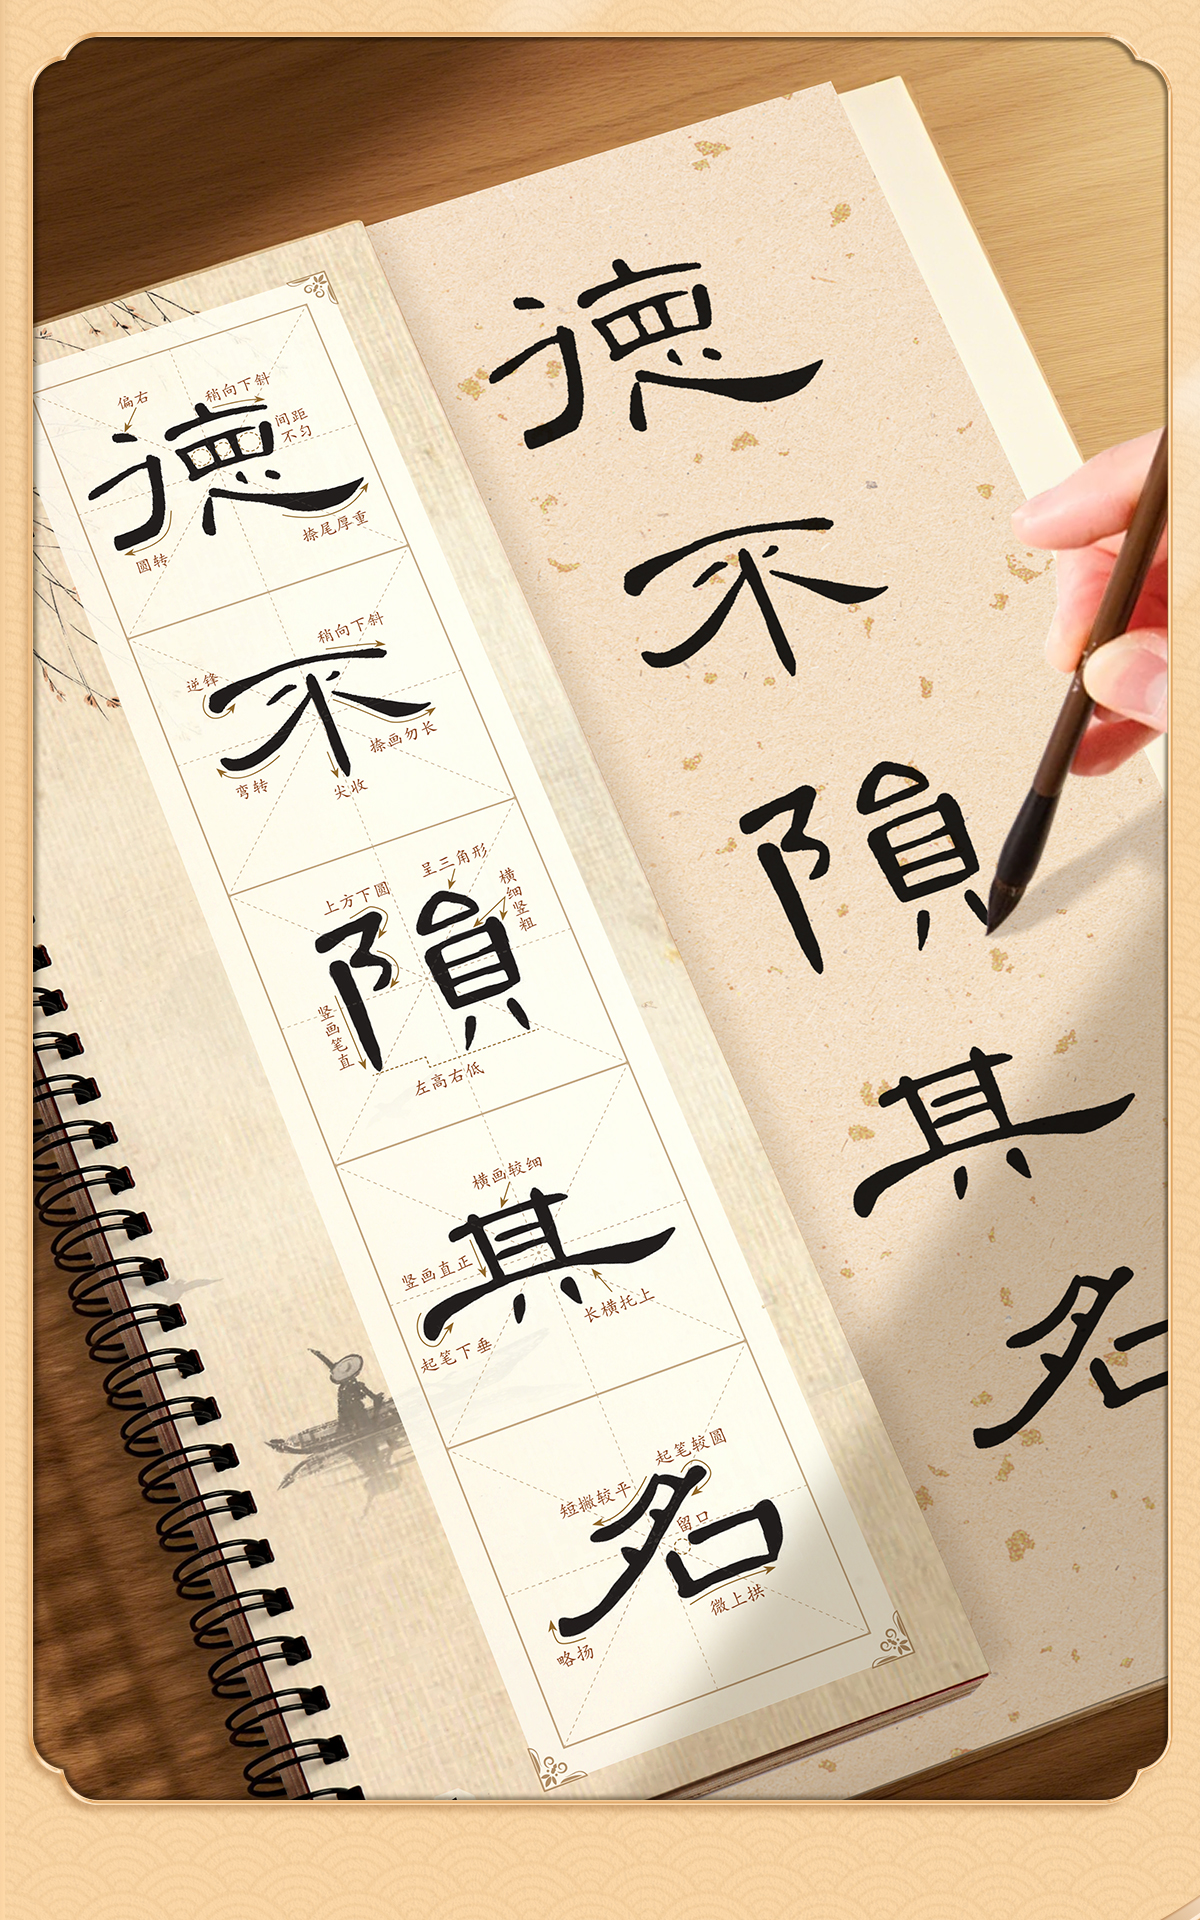 德
偏右
稍向下斜
间距
不匀
捺尾厚重
圆转
不
稍向下斜
逆锋
捺画勿长
弯转
尖收
隕
呈三角形
上方下圆
横细竖粗
竖画笔直
左高右低
其
横画较细
竖画直正
长横托上
起笔下垂
名
起笔较圆
短撇较平
留口
微上拱
略扬
德
不
隕
其
名